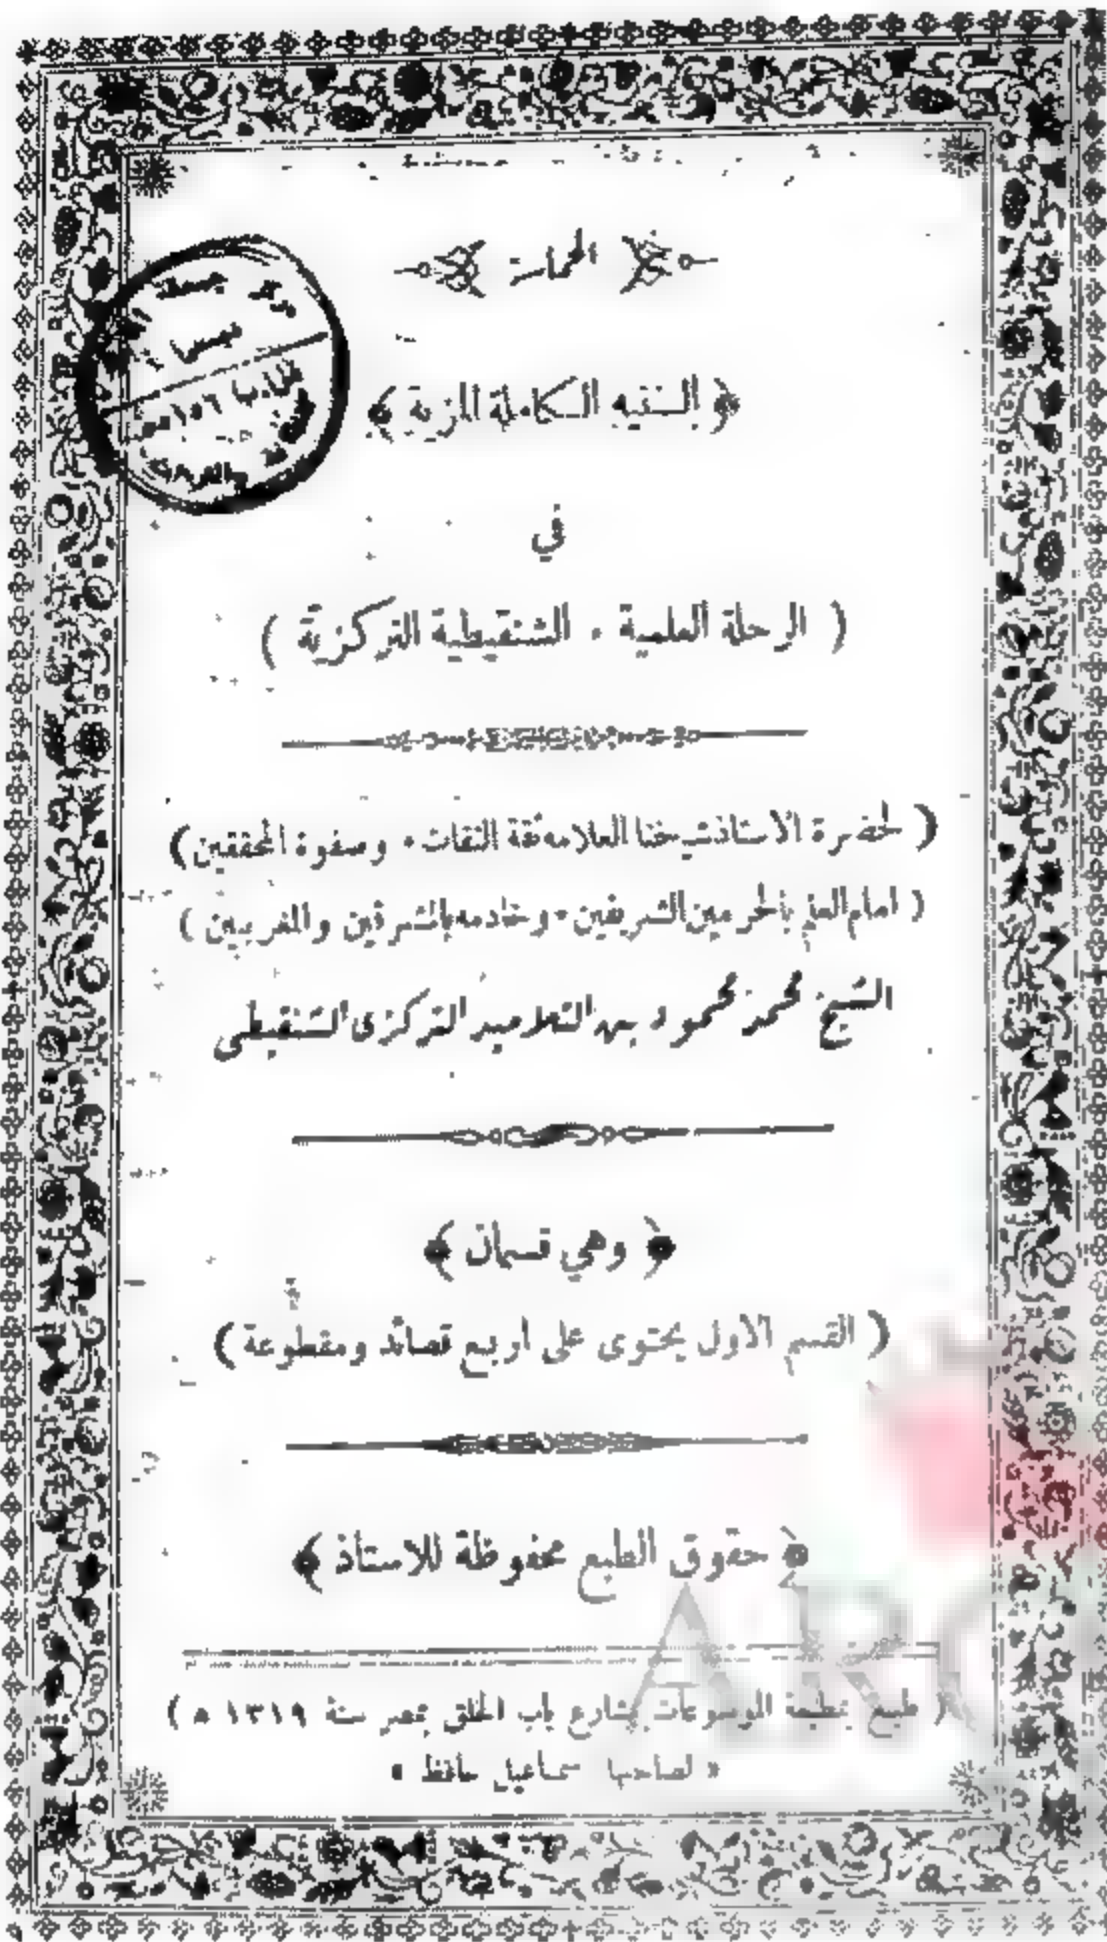 الحماسة
﴿ السنيه الكاملة المزية ﴾
في
( الرحلة العلمية . الشنقيطية التركزية )
( لحضرة الاستاذ شيخنا العلامه ثقة الثقات . وصفوة المحققين )
( امام العلم بالحرمين الشريفين . وخادمه بالمشرقين والمغربين )
الشيخ محمد محمود بن التلاميد التركزى الشنقيطى
﴿ وهي قسمان ﴾
( القسم الاول يحتوى على اربع قصائد ومقطوعة )
﴿ حقوق الطبع محفوظة للاستاذ ﴾
( طبع بمطبعة الموسوعات بشارع باب الخلق بمصر سنة ١٣١٩ ه )
« لصاحبها سماعيل حافظ »